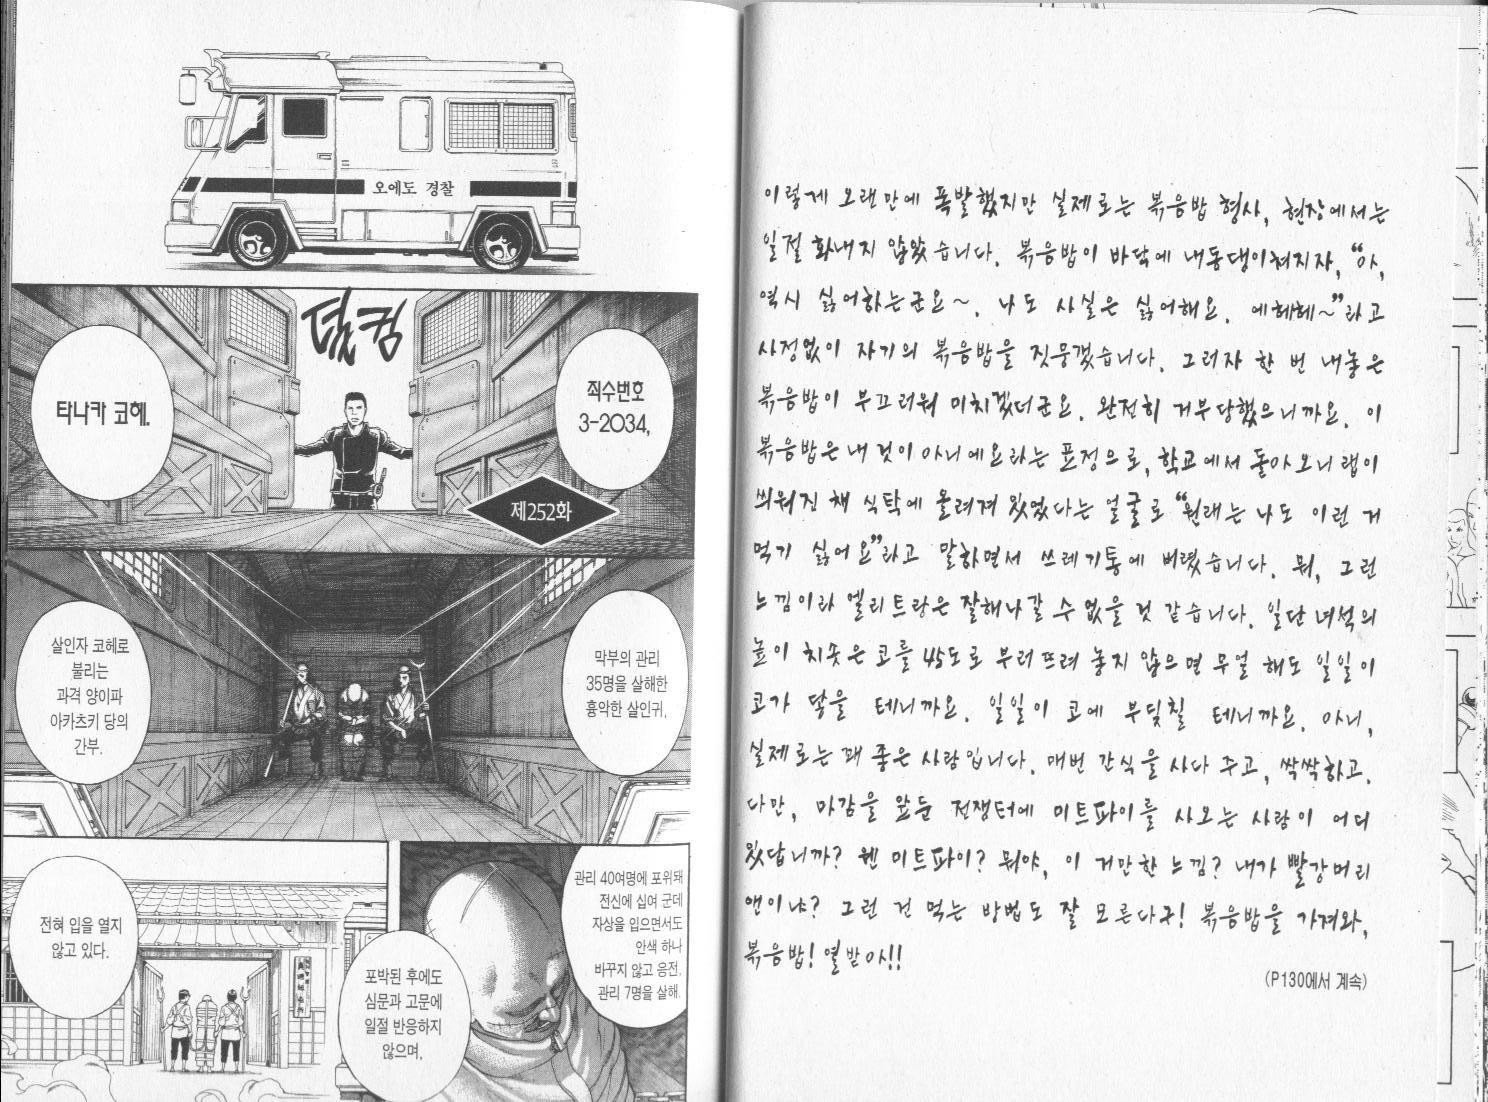 오에도 경찰
덜컹
죄수번호
3-2034,
타나카 코헤.
제252화
막부의 관리
35명을 살해한
흉악한 살인귀,
살인자 코헤로
불리는
과격 양이파
아카츠키 당의
간부.
관리 40여명에 포위돼
전신에 십여 군데
자상을 입으면서도
안색 하나
바꾸지 않고 응전,
관리 7명을 살해.
포박된 후에도
심문과 고문에
일절 반응하지
않으며,
전혀 입을 열지
않고 있다.
이렇게 오랜만에 폭발했지만 실제로는 볶음밥 형사, 현장에서는
일절 화내지 않았습니다. 볶음밥이 바닥에 내동댕이쳐지자, "아,
역시 싫어하는군요~. 나도 사실은 싫어해요. 에헤헤~"라고
사정없이 자기의 볶음밥을 짓뭉갰습니다. 그러자 한 번 내놓은
볶음밥이 부끄러워 미치겠더군요. 완전히 거부당했으니까요. 이
볶음밥은 내 것이 아니에요라는 표정으로, 학교에서 돌아오니 랩이
씌워진 채 식탁에 올려져 있었다는 얼굴로 "원래는 나도 이런 거
먹기 싫어요"라고 말하면서 쓰레기통에 버렸습니다. 뭐, 그런
느낌이라 엘리트랑은 잘해나갈 수 없을 것 같습니다. 일단 녀석의
높이 치솟은 코를 45도로 부러뜨려 놓지 않으면 무얼 해도 일일이
코가 닿을 테니까요. 일일이 코에 부딪칠 테니까요. 아니,
실제로는 꽤 좋은 사람입니다. 매번 간식을 사다 주고, 싹싹하고.
다만, 마감을 앞둔 전쟁터에 미트파이를 사오는 사람이 어디
있답니까? 웬 미트파이? 뭐야, 이 거만한 느낌? 내가 빨강머리
앤이냐? 그런 건 먹는 방법도 잘 모른다구! 볶음밥을 가져와,
볶음밥! 열받아!!
(P130에서 계속)